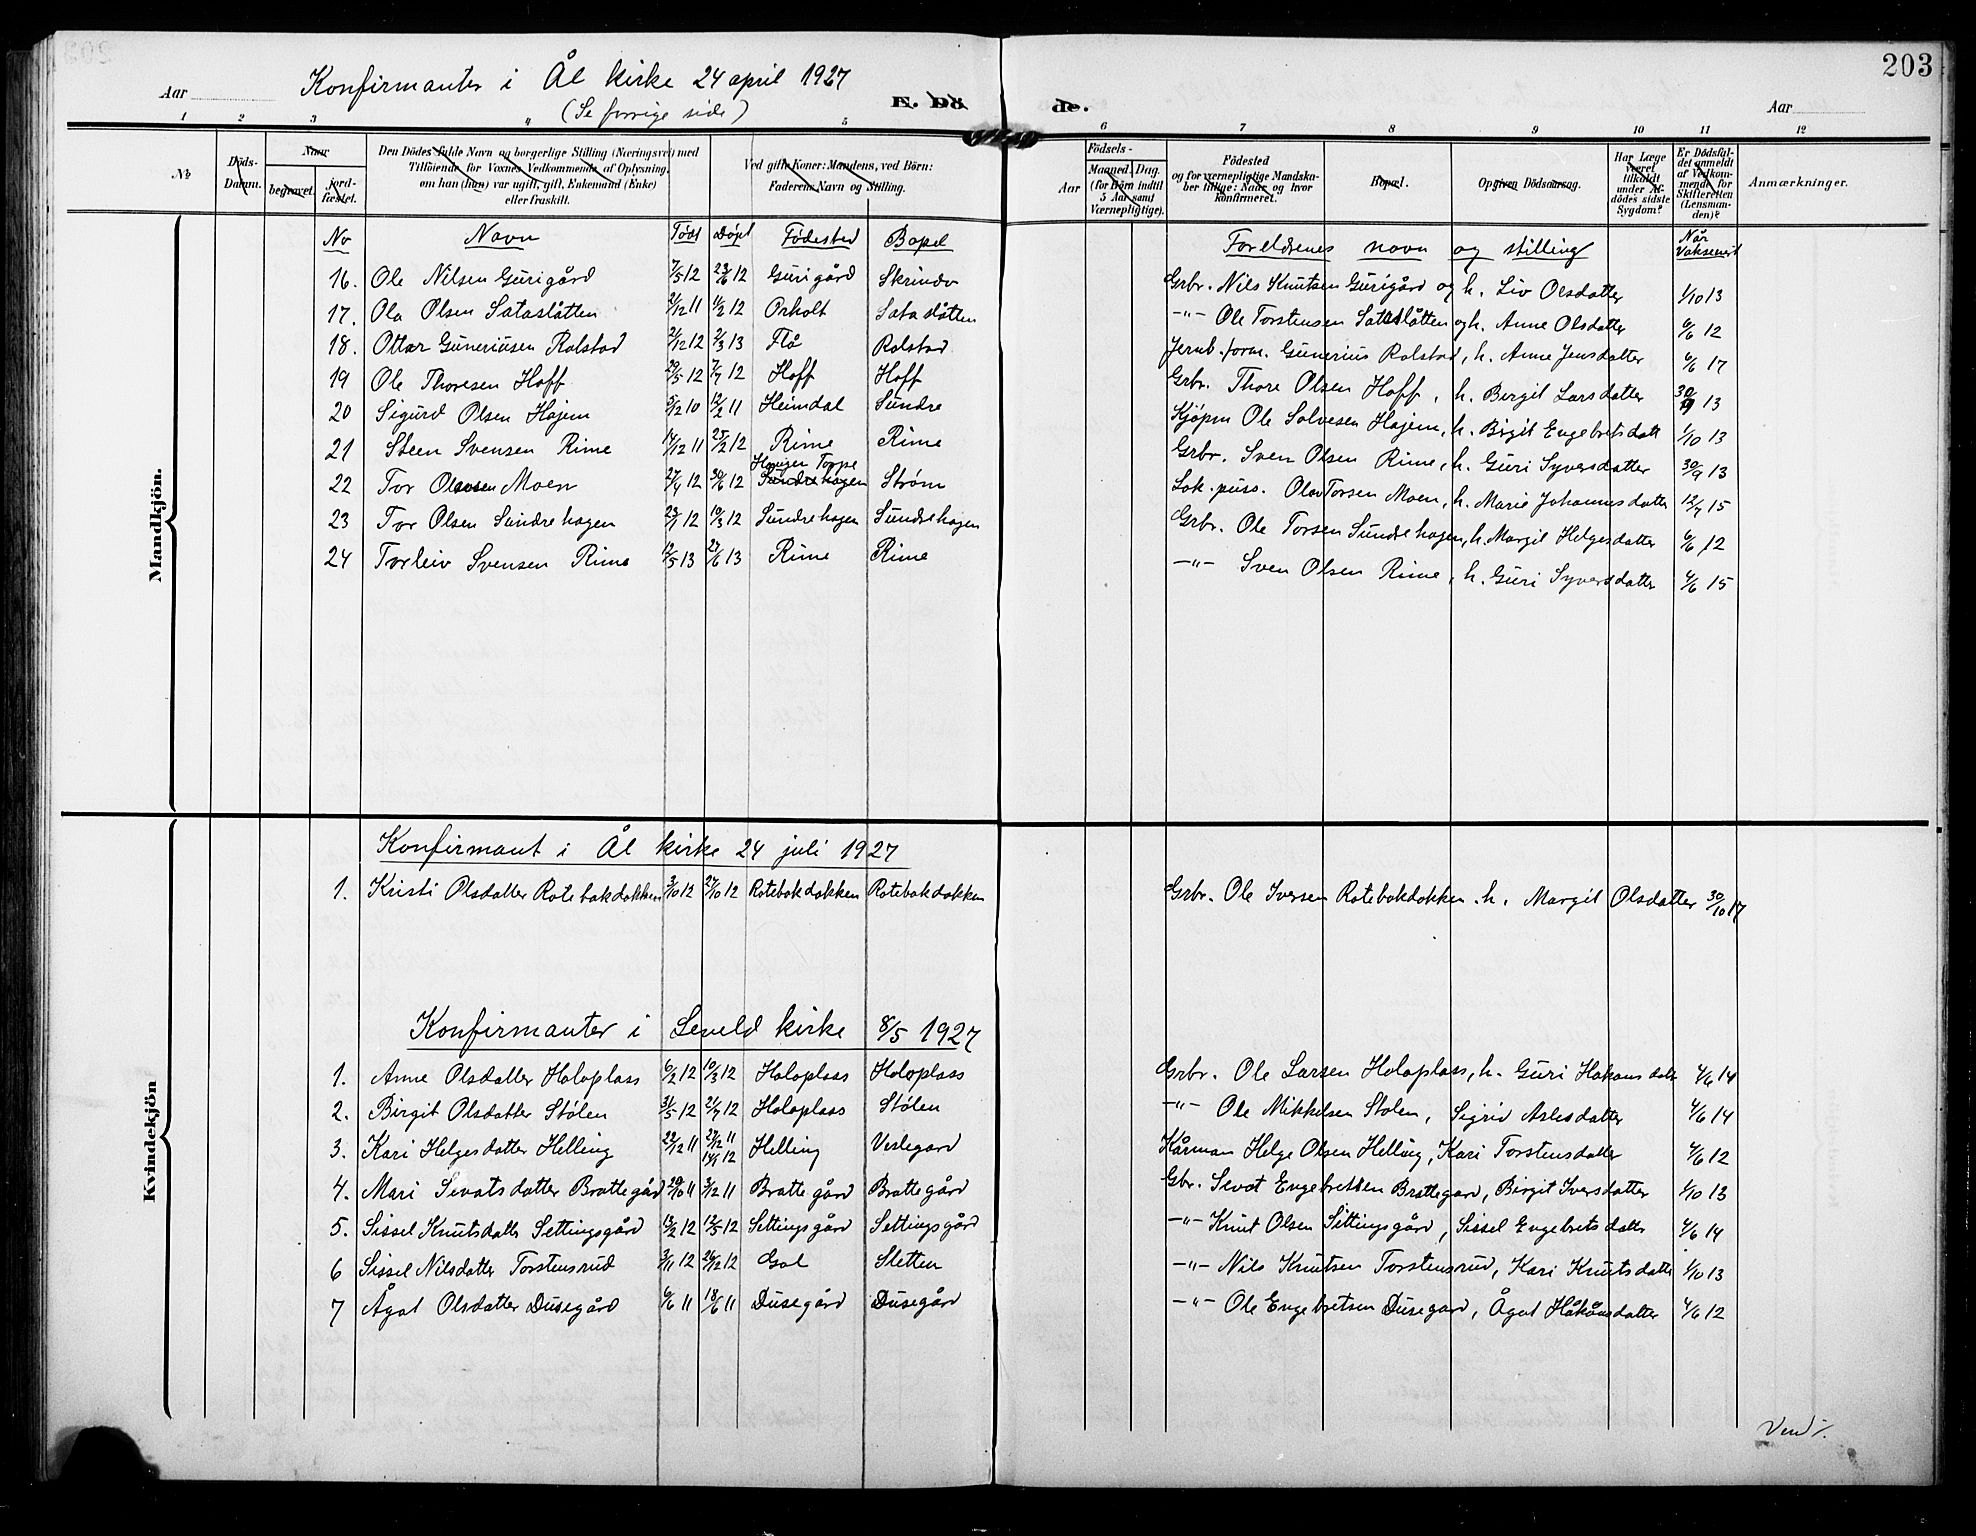 203
Konfirmanter i Ål kirke 24 april 1927
(Se forrige side)
Aar
E. Dö de.
Aar
1 2 3 4 5 6 7 8 9 10 11 12
No
Döds-Datum.
Naar
begravet.
jord-fæstet.
Den Dödes fulde Navn og borgerlige Stilling (Næringsvei) med
Tilföiende for Voxnes Vedkommende af Oplysning,
om han (hun) var ugift, gift, Enkemand (Enke)
eller fraskilt.
Ved gifte Koner: Mandens, ved Börn:
Faderens Navn og Stilling.
Aar
Födsels-
Maaned. Dag.
(for Börn indtil
5 Aar samt
Værnepligtige).
Födested
og for værnepligtige Mandska-
ber tillige: Naar og hvor
konfirmeret.
Bopæl.
Opgiven Dödsaarsag.
Har Læge
været
tilkaldt
under Af-
dödes sidste
Sygdom?
Er Dödsfal-
det anmeldt
af Vedkom-
mende for
Skifteretten
(Lensman-
den)?
Anmærkninger.
Mandkjön.
No Navn Født Døpt Fødested Bopel Foreldrenes navn og stilling Når Vaksinert
16. Ole Nilsen Gurigård 7/5 12 23/6 12 Gurigård Skrindo Grbr. Nils Knutsen Gurigård og h. Liv Olsdatter 1/10 13
17. Ola Olsen Sataslåtten 21/12 11 11/2 12 Opholt Sataslåtten -"- Ole Torstensen Sataslåtten og h. Anne Olsdatter 6/6 12
18. Ottar Guneriusen Rolstad 21/12 12 2/3 13 Flå Rolstad Jernb. form. Gunerius Rolstad, h. Anne Jensdatter 6/6 17
19 Ole Thoresen Hoff 29/5 12 7/7 12 Hoff Hoff Grbr. Thore Olsen Hoff, h. Birgit Larsdatter 30/9 13
20 Sigurd Olsen Hajem 5/12 10 12/2 11 Heimdal Sundre Kjøpm Ole Solvesen Hajem, h. Birgit Engebretsdatt 1/10 13
21 Steen Svensen Rime 14/12 11 25/2 12 Rime Rime Grbr. Sven Olsen Rime, h. Guri Syversdatter 30/9 13
22 Tor Olavsen Moen 27/4 12 30/6 12 Sundrehagen Strøm Lok. puss. Olav Torsen Moen, h. Marie Johannesdatter 12/7 15
23 Tor Olsen Sundrehagen 23/1 12 10/3 12 Sundrehagen Sundrehagen Grbr. Ole Torsen Sundrehagen, h. Margit Helgesdatter 6/6 12
24 Torleiv Svensen Rime 12/5 13 27/6 13 Rime Rime -"- Sven Olsen Rime, h. Guri Syversdatter 4/6 15
Kvindekjön
Konfirmant i Ål kirke 24 juli 1927
1. Kristi Olsdatter Rotebakdokken 3/10 12 27/10 12 Rotebakdokken Rotebakdokken Grbr. Ole Iversen Rotebakdokken. h. Margit Olsdatter 30/10 17
Konfirmanter i Leveld kirke 8/5 1927
1. Anne Olsdatter Holoplass 6/2 12 10/3 12 Holoplass Holoplass Grbr. Ole Larsen Holoplass, h. Guri Hakonsdatt 4/6 14
2. Birgit Olsdatter Stølen 31/5 12 21/7 12 Holoplass Stølen -"- Ole Mikkelsen Stolen, Sigrid Aslesdatter 4/6 14
3. Kari Helgesdatter Helling 22/12 11 27/12 11 14/4 12 Helling Veslegard Kårman Helge Olsen Helling, Kari Torstensdatter 4/6 12
4. Mari Sevatsdatter Brattegård 29/10 11 3/12 11 Brattegård Brattegård Gbr. Sevat Engebretsen Brattegard, Birgit Iversdatter 1/10 13
5. Sissel Knutsdatter Settingsgård 13/2 12 12/5 12 Settingsgård Settingsgård -"- Knut Olsen Settingsgård, Sissel Engebretsdatter 4/6 14
6 Sissel Nilsdatter Torstensrud 3/11 12 26/12 12 Gol Sletten -"- Nils Knutsen Torstensrud, Kari Knutsdatter 1/10 13
7 Ågot Olsdatter Dusegård 6/6 11 18/6 11 Dusegård Dusegård -"- Ole Engebretsen Dusegard, Ågot Håkånsdatter 4/6 12
Vend %.